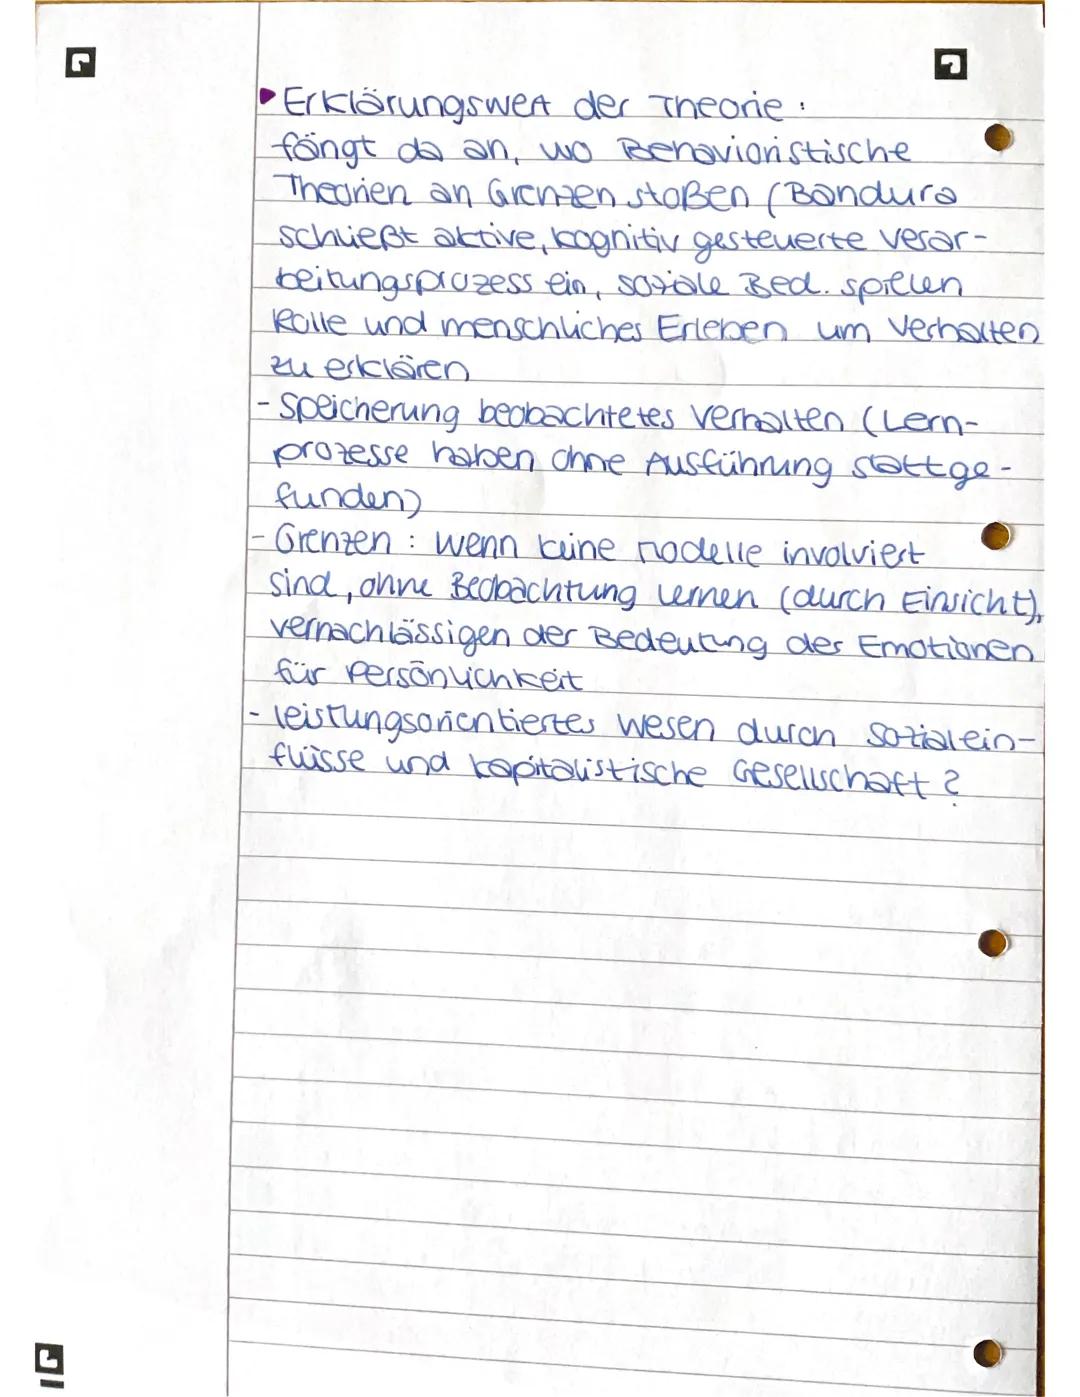 Erklärungswert der Theorie:
fängt da an, wo Behavioristische
Theorien an Grenzen stoßen (Bandura
schließt aktive, kognitiv gesteuerte Verar-
beitungsprozess ein, soziale Bed. spielen
Rolle und menschliches Erleben um Verhalten
zu erklären
- Speicherung beobachtetes Verhalten (Lern-
prozesse haben ohne Ausführung stattge-
funden)
- Grenzen: wenn keine Modelle involviert
sind, ohne Beobachtung lernen (durch Einsicht),
vernachlässigen der Bedeutung der Emotionen
für Persönlichkeit
- leistungsorientiertes Wesen durch Sozialein-
flüsse und kapitalistische Gesellschaft?